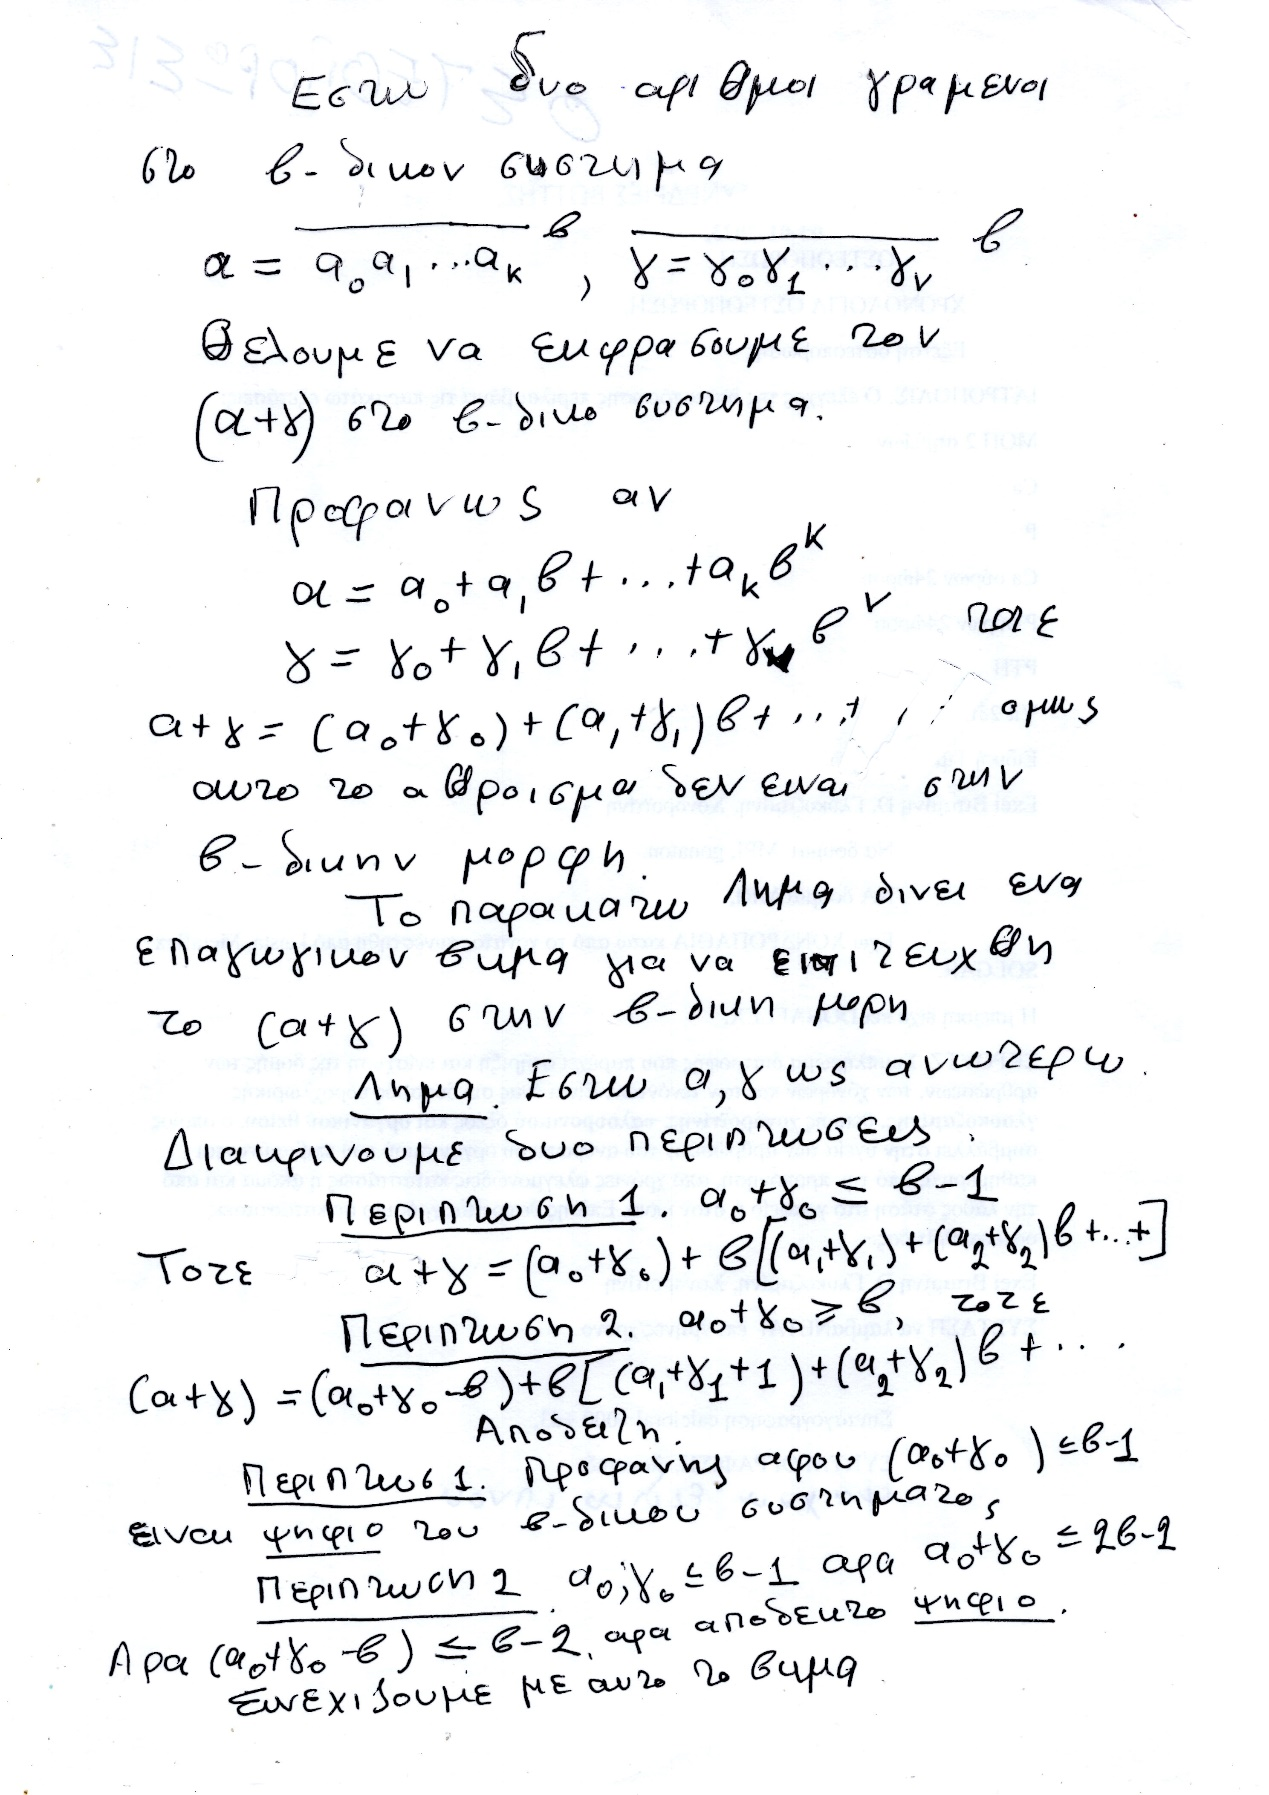 Εστω δυο αριθμοι γραμενοι
στο β-δικον συστημα
α = α₀α₁...αₖ β , γ = γ₀γ₁...γᵥ β
Θελουμε να εκφρασουμε τον
(α+γ) στο β-δικο συστημα.
Προφανως αν
α = α₀+α₁β+...+αₖβᵏ
γ = γ₀+γ₁β+...+γᵥβᵛ τοτε
α+γ = (α₀+γ₀)+(α₁+γ₁)β+...+... ομως
αυτο το αθροισμα δεν ειναι στην
β-δικην μορφη.
Το παρακατω Λημμα δινει ενα
επαγωγικον σχημα για να επιτευχθη
το (α+γ) στην β-δικη μορη
Λημα. Εστω α, γ ως ανωτερω.
Διακρινουμε δυο περιπτωσεις.
Περιπτωση 1. α₀+γ₀ ≤ β-1
Τοτε α+γ = (α₀+γ₀)+β[(α₁+γ₁)+(α₂+γ₂)β+...+]
Περιπτωση 2. α₀+γ₀ ≥ β, τοτε
(α+γ) = (α₀+γ₀-β)+β[(α₁+γ₁+1)+(α₂+γ₂)β+....
Αποδειξη.
Περιπτωσ 1. Προφανης αφου (α₀+γ₀) ≤ β-1
ειναι ψηφιο του β-δικου συστηματος
Περιπτωση 2. α₀,γ₀ ≤ β-1 αρα α₀+γ₀ ≤ 2β-2
Αρα (α₀+γ₀-β) ≤ β-2, αρα αποδεκτο ψηφιο.
Συνεχιζουμε με αυτο το βημα